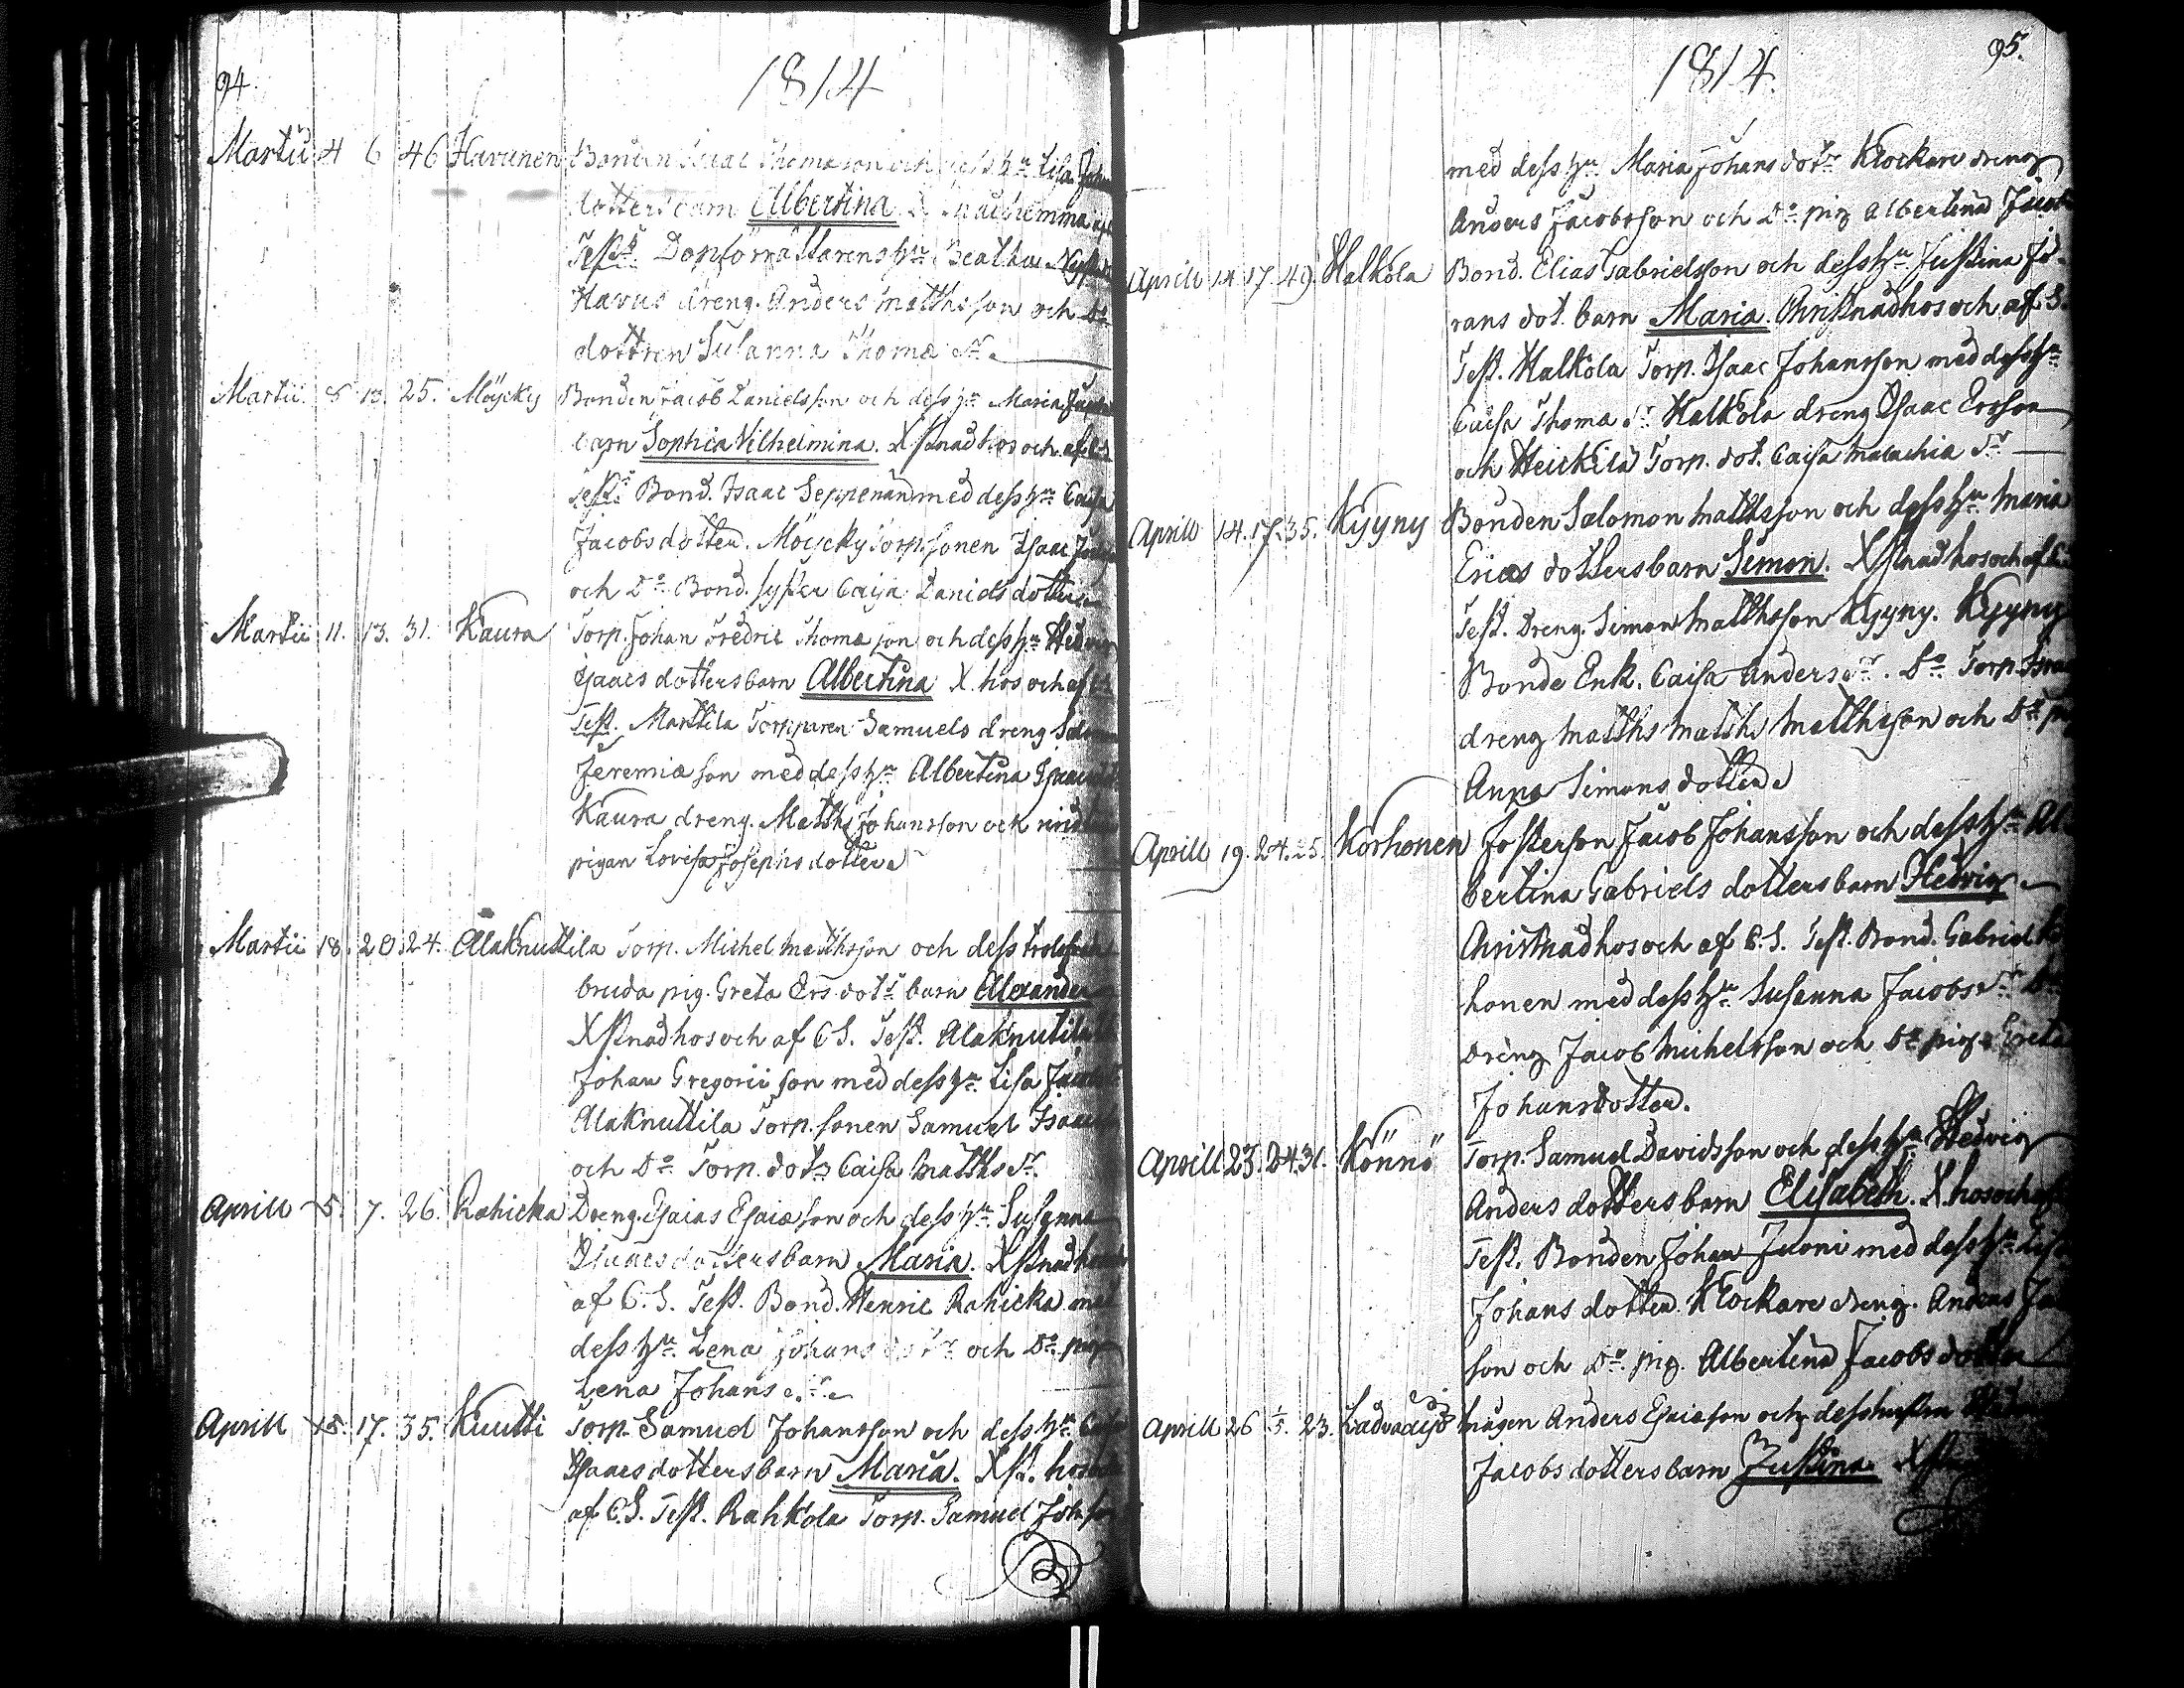 94.
1814
Martii 4 6 46 Havunen Bonden Isaac Thomæson och dess hu. Lisa Johans
dotters barn Albertina.
Test. Dopförrättarens hu. Beatha
Havus dreng. Anders Matthsson och Do
dottren Susanna Thomæ dr.
Martii 8 13. 25. Möycky Bonden Jacob Danielsson och dess hu. Maria
barn Sophia Vilhelmina. Xstnad hos och af
Test. Bond. Isaac Seppenän med dess hu. Caisa
Jacobsdotter. Möycky Torp. sonen Isaac
och Do Bond. syster Caisa Daniels dotter
Martii 11. 13. 31. Kaura Torp. Johan Fredric Thomæson och dess hu. Hedvig
Isaacs dotters barn Albertina X. hos och af C.
Test. Marttila Torpparen Samuels dreng Salomon
Jeremiæson med dess hu. Albertina Isaacsdot
Kaura dreng. Matths Johansson och
pigan Lovisa Josephsdotter
Martii 18. 20. 24. Alaknuttila Torp. Michel Matthsson och dess trolofvade
bruda pig. Greta Ers dotr barn Alexander
Xstnad hos och af C.S. Test. Alaknuttila
Johan Gregorii son med dess hu. Lisa Jacobs
Alaknuttila Torp. sonen Samuel Isaacs
och Do Torp. dotr Caisa Matths dr.
Aprill 5. 7. 26. Rahicka Dreng. Esaias Esaiæson och dess hu. Susanna
Isaacs dotters barn Maria. Xstnad hos
af C.S. Test. Bond. Henric Rahicka med
dess hu. Lena Johans dotr och Do pig
Lena Johans dr.
Aprill 15. 17. 35. Kuutti Torp. Samuel Johansson och dess hu. Caisa
Isaacs dotters barn Maria. Xst. hos
af C.S. Test. Rahkola Torp. Samuel Joh.son
95.
1814.
med dess hu. Maria Johans dotr. Klockare dreng
Anders Jacobsson och Do pig Albertina Jacobs
Aprill 14 17. 49. Halkola Bond. Elias Gabrielsson och dess hu. Justina Jö-
rans dot. barn Maria. Christnad hos och af S.
Test. Halkola Torp. Isaac Johansson med dess hu
Caisa Thomæ dr. Halkola dreng Isaac Ersson
och Heickilä Torp. dot. Caisa Malachiæ dr.
Aprill 14. 17. 35. Kyyny Bonden Salomon Matthsson och dess hu. Maria
Erics dotters barn Simon. Xstnad hos och af C.
Test. Dreng. Simon Matthsson Kyyny. Kyyny
Bonde Enk. Caisa Anders dr. Do Torp.
dreng Matths Matths Matthsson och Do pig
Anna Simons dotter
Aprill 19. 24. 25. Korhonen Fosterson Jacob Johansson och dess hu. Al-
bertina Gabriels dotters barn Hedvig
Christnad hos och af C.S. Test. Bond. Gabriel Kor
honen med dess hu. Susanna Jacobs dr. Do
Dreng Jacob Michelsson och Do pig. Greta
Johansdotter.
Aprill 23. 24. 31. Könnö Torp. Samuel Davidsson och dess hu. Hedvig
Anders dotters barn Elisabeth. X. hos och af
Test. Bonden Johan Juoni med dess hu. Lisa
Johans dotter. Klockare dreng. Anders Jacobs
son och Do pig. Albertina Jacobs dotter
Aprill 26 1/5. 23. Ladvaayo mågen Anders Esaiæson och dess hustru
Jacobs dotters barn Justina. Xst